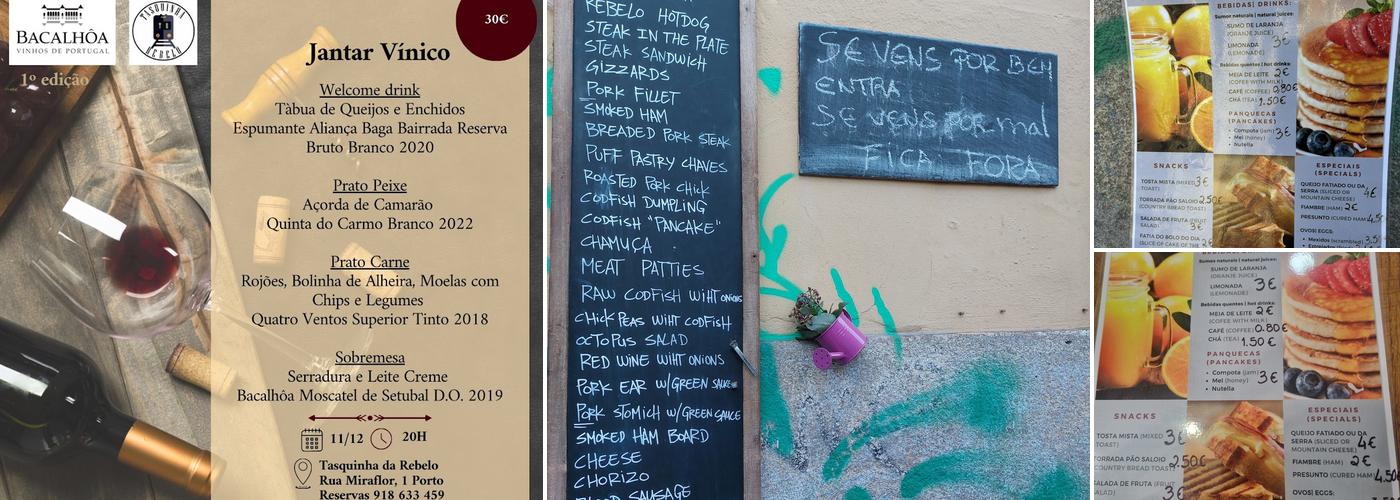 BACALHÔA
VINHOS DE PORTUGAL
TASQUINHA
REBELO
1º edição
30€
Jantar Vínico
Welcome drink
Tàbua de Queijos e Enchidos
Espumante Aliança Baga Bairrada Reserva
Bruto Branco 2020
Prato Peixe
Açorda de Camarão
Quinta do Carmo Branco 2022
Prato Carne
Rojões, Bolinha de Alheira, Moelas com
Chips e Legumes
Quatro Ventos Superior Tinto 2018
Sobremesa
Serradura e Leite Creme
Bacalhôa Moscatel de Setubal D.O. 2019
11/12 20H
Tasquinha da Rebelo
Rua Miraflor, 1 Porto
Reservas 918 633 459
REBELO HOTDOG
STEAK IN THE PLATE
STEAK SANDWICH
GIZZARDS
PORK FILLET
SMOKED HAM
BREADED PORK STEAK
PUFF PASTRY CHAVES
ROASTED PORK CHICK
CODFISH DUMPLING
CODFISH "PANCAKE"
CHAMUÇA
MEAT PATTIES
RAW CODFISH WIHT ONIONS
CHICK PEAS WIHT CODFISH
OCTOPUS SALAD
RED WINE WIHT ONIONS
PORK EAR W/GREEN SAUCE
PORK STOMICH W/GREEN SAUCE
SMOKED HAM BOARD
CHEESE
CHORIZO
BLOOD SAUSAGE
SE VENS POR BEM
ENTRA
SE VENS POR mal
FICA FORA
BEBIDAS| DRINKS:
Sumos naturais | natural juices:
SUMO DE LARANJA
(ORANJE JUICE)
LIMONADA 3€
(LEMONADE)
Bebidas quentes | hot drinks:
MEIA DE LEITE 2€
(COFEE WITH MILK)
CAFÉ (COFFEE) 0.80€
CHÁ (TEA) 1.50€
PANQUECAS
(PANCAKES)
Compota (jam)
Mel (honey) 3€
Nutella
SNACKS
TOSTA MISTA (MIXED 3€
TOAST)
TORRADA PÃO SALOIO 2,50€
(COUNTRY BREAD TOAST)
SALADA DE FRUTA (FRUIT
SALAD) 3€
FATIA DO BOLO DO DIA
(SLICE OF CAKE OF THE
ESPECIAIS
(SPECIALS)
QUEIJO FATIADO OU DA
SERRA (SLICED OR 4€
MOUNTAIN CHEESE)
FIAMBRE (HAM) 2€
PRESUNTO (CURED HAM) 4,50
OVOS| EGGS:
Mexidos (scrambled)
Sumos naturais | natural juices:
SUMO DE LARANJA
(ORANJE JUICE)
LIMONADA 3€
(LEMONADE)
Bebidas quentes | hot drinks:
MEIA DE LEITE 2€
(COFEE WITH MILK)
CAFÉ (COFFEE) 0.80€
CHÁ (TEA) 1.50€
PANQUECAS
(PANCAKES)
Compota (jam)
Mel (honey) 3€
Nutella
SNACKS
TOSTA MISTA (MIXED 3€
TOAST)
TORRADA PÃO SALOIO 2,50€
COUNTRY BREAD TOAST)
SALADA DE FRUTA (FRUIT
SALAD) 3€
ESPECIAIS
(SPECIALS)
QUEIJO FATIADO OU DA
SERRA (SLICED OR 4€
MOUNTAIN CHEESE)
FIAMBRE (HAM) 2€
PRESUNTO (CURED HAM) 4,50
OVOS| EGGS: